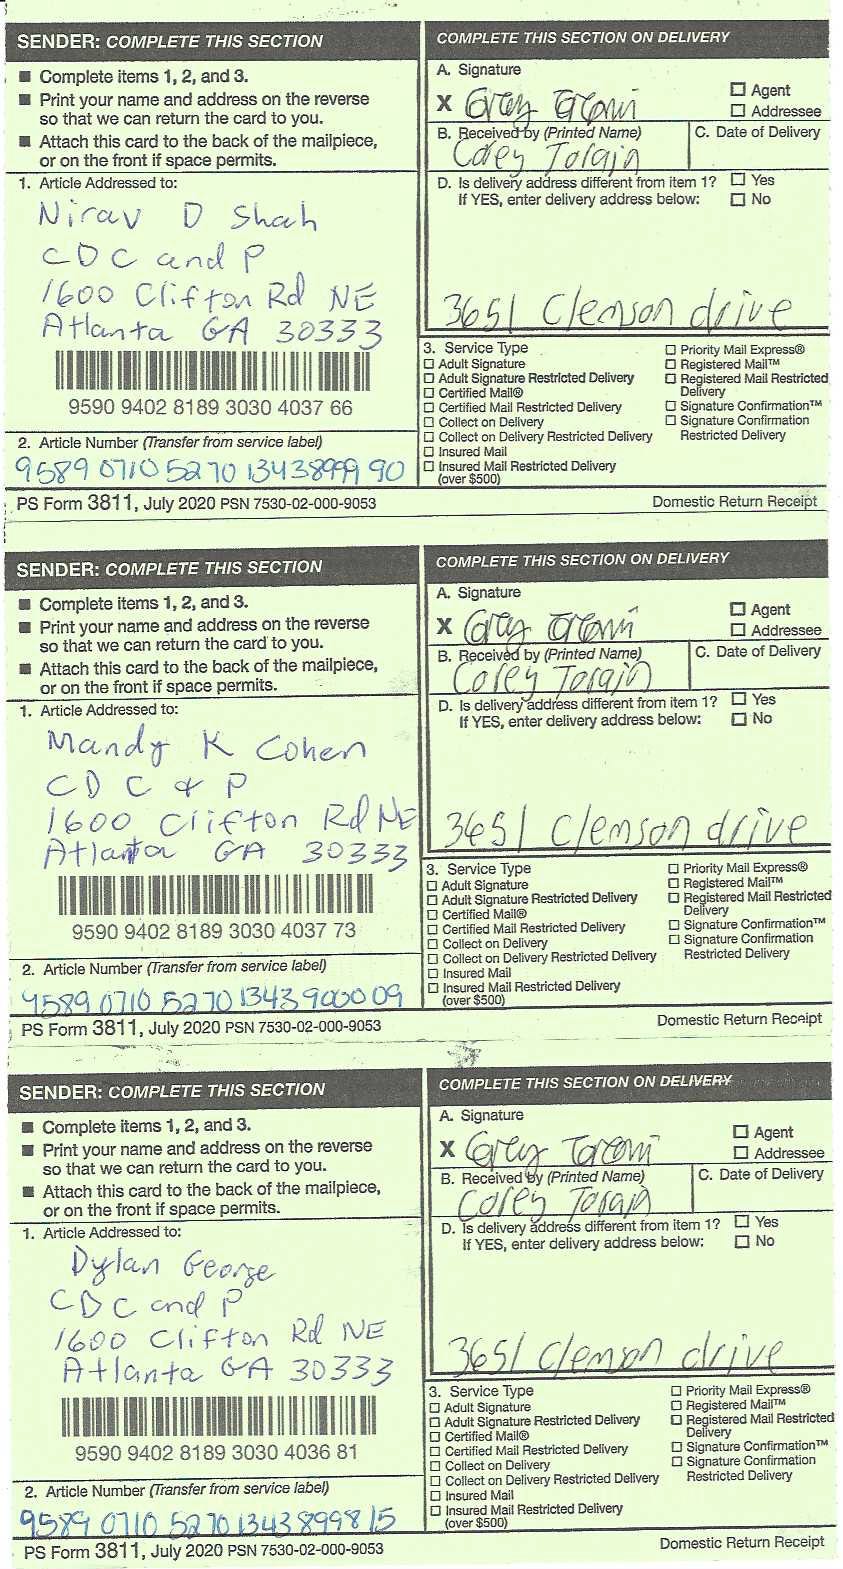 SENDER: COMPLETE THIS SECTION
■ Complete items 1, 2, and 3.
■ Print your name and address on the reverse
so that we can return the card to you.
■ Attach this card to the back of the mailpiece,
or on the front if space permits.
1. Article Addressed to:
Nirav D Shah
CDC and P
1600 Clifton Rd NE
Atlanta GA 30333
9590 9402 8189 3030 4037 66
2. Article Number (Transfer from service label)
9589 0710 5270 1343 8999 90
COMPLETE THIS SECTION ON DELIVERY
A. Signature
X Corey
☐ Agent
☐ Addressee
B. Received by (Printed Name)
Corey Torain
C. Date of Delivery
D. Is delivery address different from item 1? ☐ Yes
If YES, enter delivery address below: ☐ No
3651 Clemson drive
3. Service Type
☐ Adult Signature
☐ Adult Signature Restricted Delivery
☐ Certified Mail®
☐ Certified Mail Restricted Delivery
☐ Collect on Delivery
☐ Collect on Delivery Restricted Delivery
☐ Insured Mail
☐ Insured Mail Restricted Delivery
(over $500)
☐ Priority Mail Express®
☐ Registered Mail™
☐ Registered Mail Restricted
Delivery
☐ Signature Confirmation™
☐ Signature Confirmation
Restricted Delivery
PS Form 3811, July 2020 PSN 7530-02-000-9053
Domestic Return Receipt
SENDER: COMPLETE THIS SECTION
■ Complete items 1, 2, and 3.
■ Print your name and address on the reverse
so that we can return the card to you.
■ Attach this card to the back of the mailpiece,
or on the front if space permits.
1. Article Addressed to:
Mandy K Cohen
CDC & P
1600 Clifton Rd NE
Atlanta GA 30333
9590 9402 8189 3030 4037 73
2. Article Number (Transfer from service label)
9589 0710 5270 1343 9000 09
COMPLETE THIS SECTION ON DELIVERY
A. Signature
X Corey
☐ Agent
☐ Addressee
B. Received by (Printed Name)
Corey Torain
C. Date of Delivery
D. Is delivery address different from item 1? ☐ Yes
If YES, enter delivery address below: ☐ No
3651 Clemson drive
3. Service Type
☐ Adult Signature
☐ Adult Signature Restricted Delivery
☐ Certified Mail®
☐ Certified Mail Restricted Delivery
☐ Collect on Delivery
☐ Collect on Delivery Restricted Delivery
☐ Insured Mail
☐ Insured Mail Restricted Delivery
(over $500)
☐ Priority Mail Express®
☐ Registered Mail™
☐ Registered Mail Restricted
Delivery
☐ Signature Confirmation™
☐ Signature Confirmation
Restricted Delivery
PS Form 3811, July 2020 PSN 7530-02-000-9053
Domestic Return Receipt
SENDER: COMPLETE THIS SECTION
■ Complete items 1, 2, and 3.
■ Print your name and address on the reverse
so that we can return the card to you.
■ Attach this card to the back of the mailpiece,
or on the front if space permits.
1. Article Addressed to:
Dylan George
CDC and P
1600 Clifton Rd NE
Atlanta GA 30333
9590 9402 8189 3030 4036 81
2. Article Number (Transfer from service label)
9589 0710 5270 1343 8998 15
COMPLETE THIS SECTION ON DELIVERY
A. Signature
X Corey
☐ Agent
☐ Addressee
B. Received by (Printed Name)
Corey Torain
C. Date of Delivery
D. Is delivery address different from item 1? ☐ Yes
If YES, enter delivery address below: ☐ No
3651 Clemson drive
3. Service Type
☐ Adult Signature
☐ Adult Signature Restricted Delivery
☐ Certified Mail®
☐ Certified Mail Restricted Delivery
☐ Collect on Delivery
☐ Collect on Delivery Restricted Delivery
☐ Insured Mail
☐ Insured Mail Restricted Delivery
(over $500)
☐ Priority Mail Express®
☐ Registered Mail™
☐ Registered Mail Restricted
Delivery
☐ Signature Confirmation™
☐ Signature Confirmation
Restricted Delivery
PS Form 3811, July 2020 PSN 7530-02-000-9053
Domestic Return Receipt